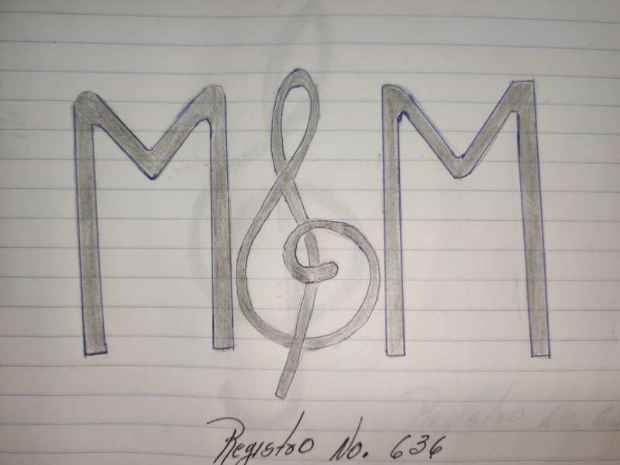 M M
Registro No. 636